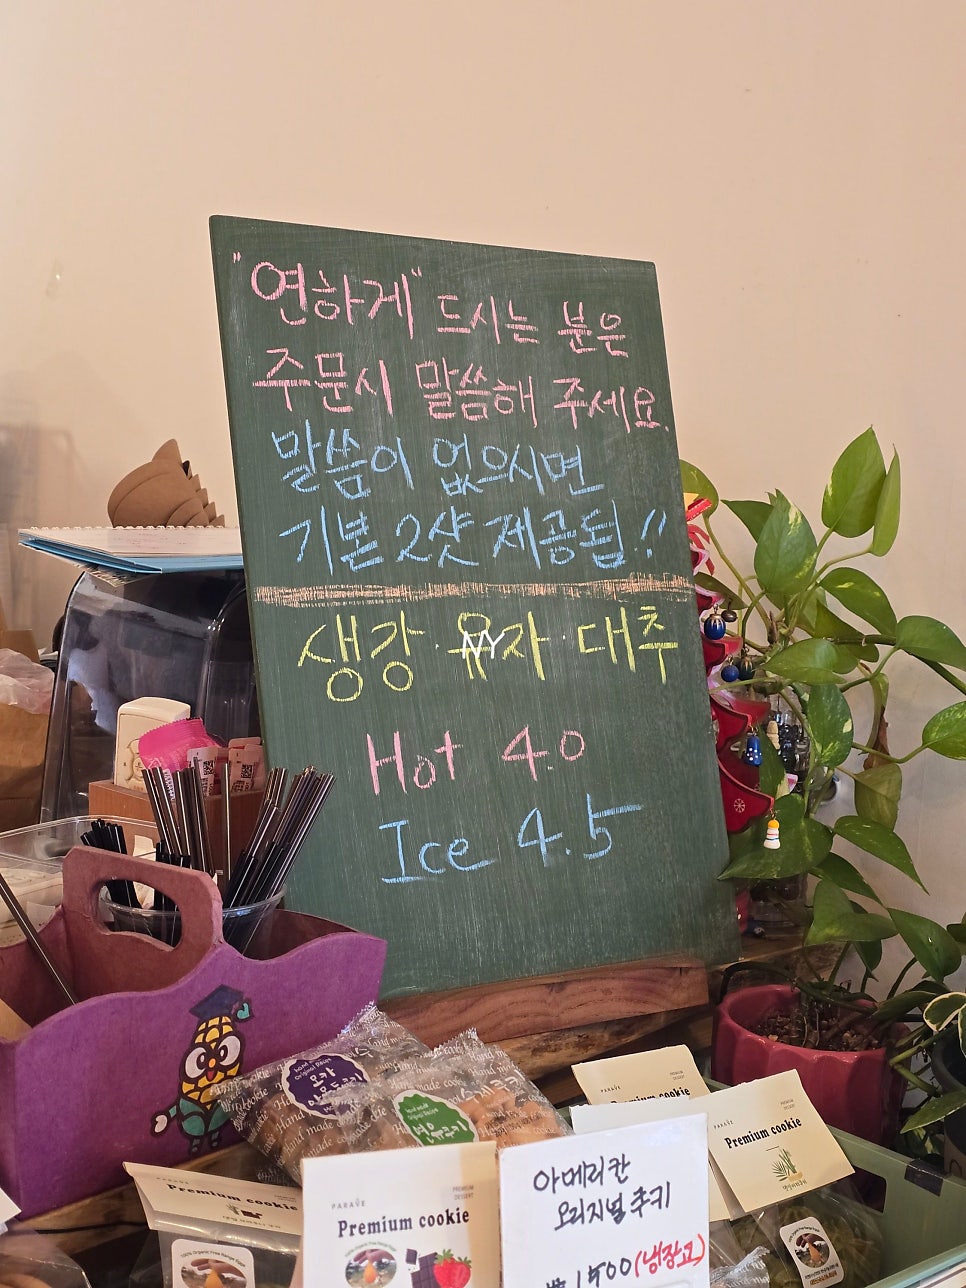 "연하게" 드시는 분은
주문시 말씀해 주세요.
말씀이 없으시면
기본 2샷 제공됨!!
생강·유자·대추
Hot 4.0
Ice 4.5
모카
연유쿠키
PARAVE
PREMIUM
DESSERT
Premium cookie
Premium cookie
PARAVE
PREMIUM
DESSERT
Premium cookie
100% Organic Free Range Eggs
아메리칸
오리지널 쿠키
₩1500(냉장고)